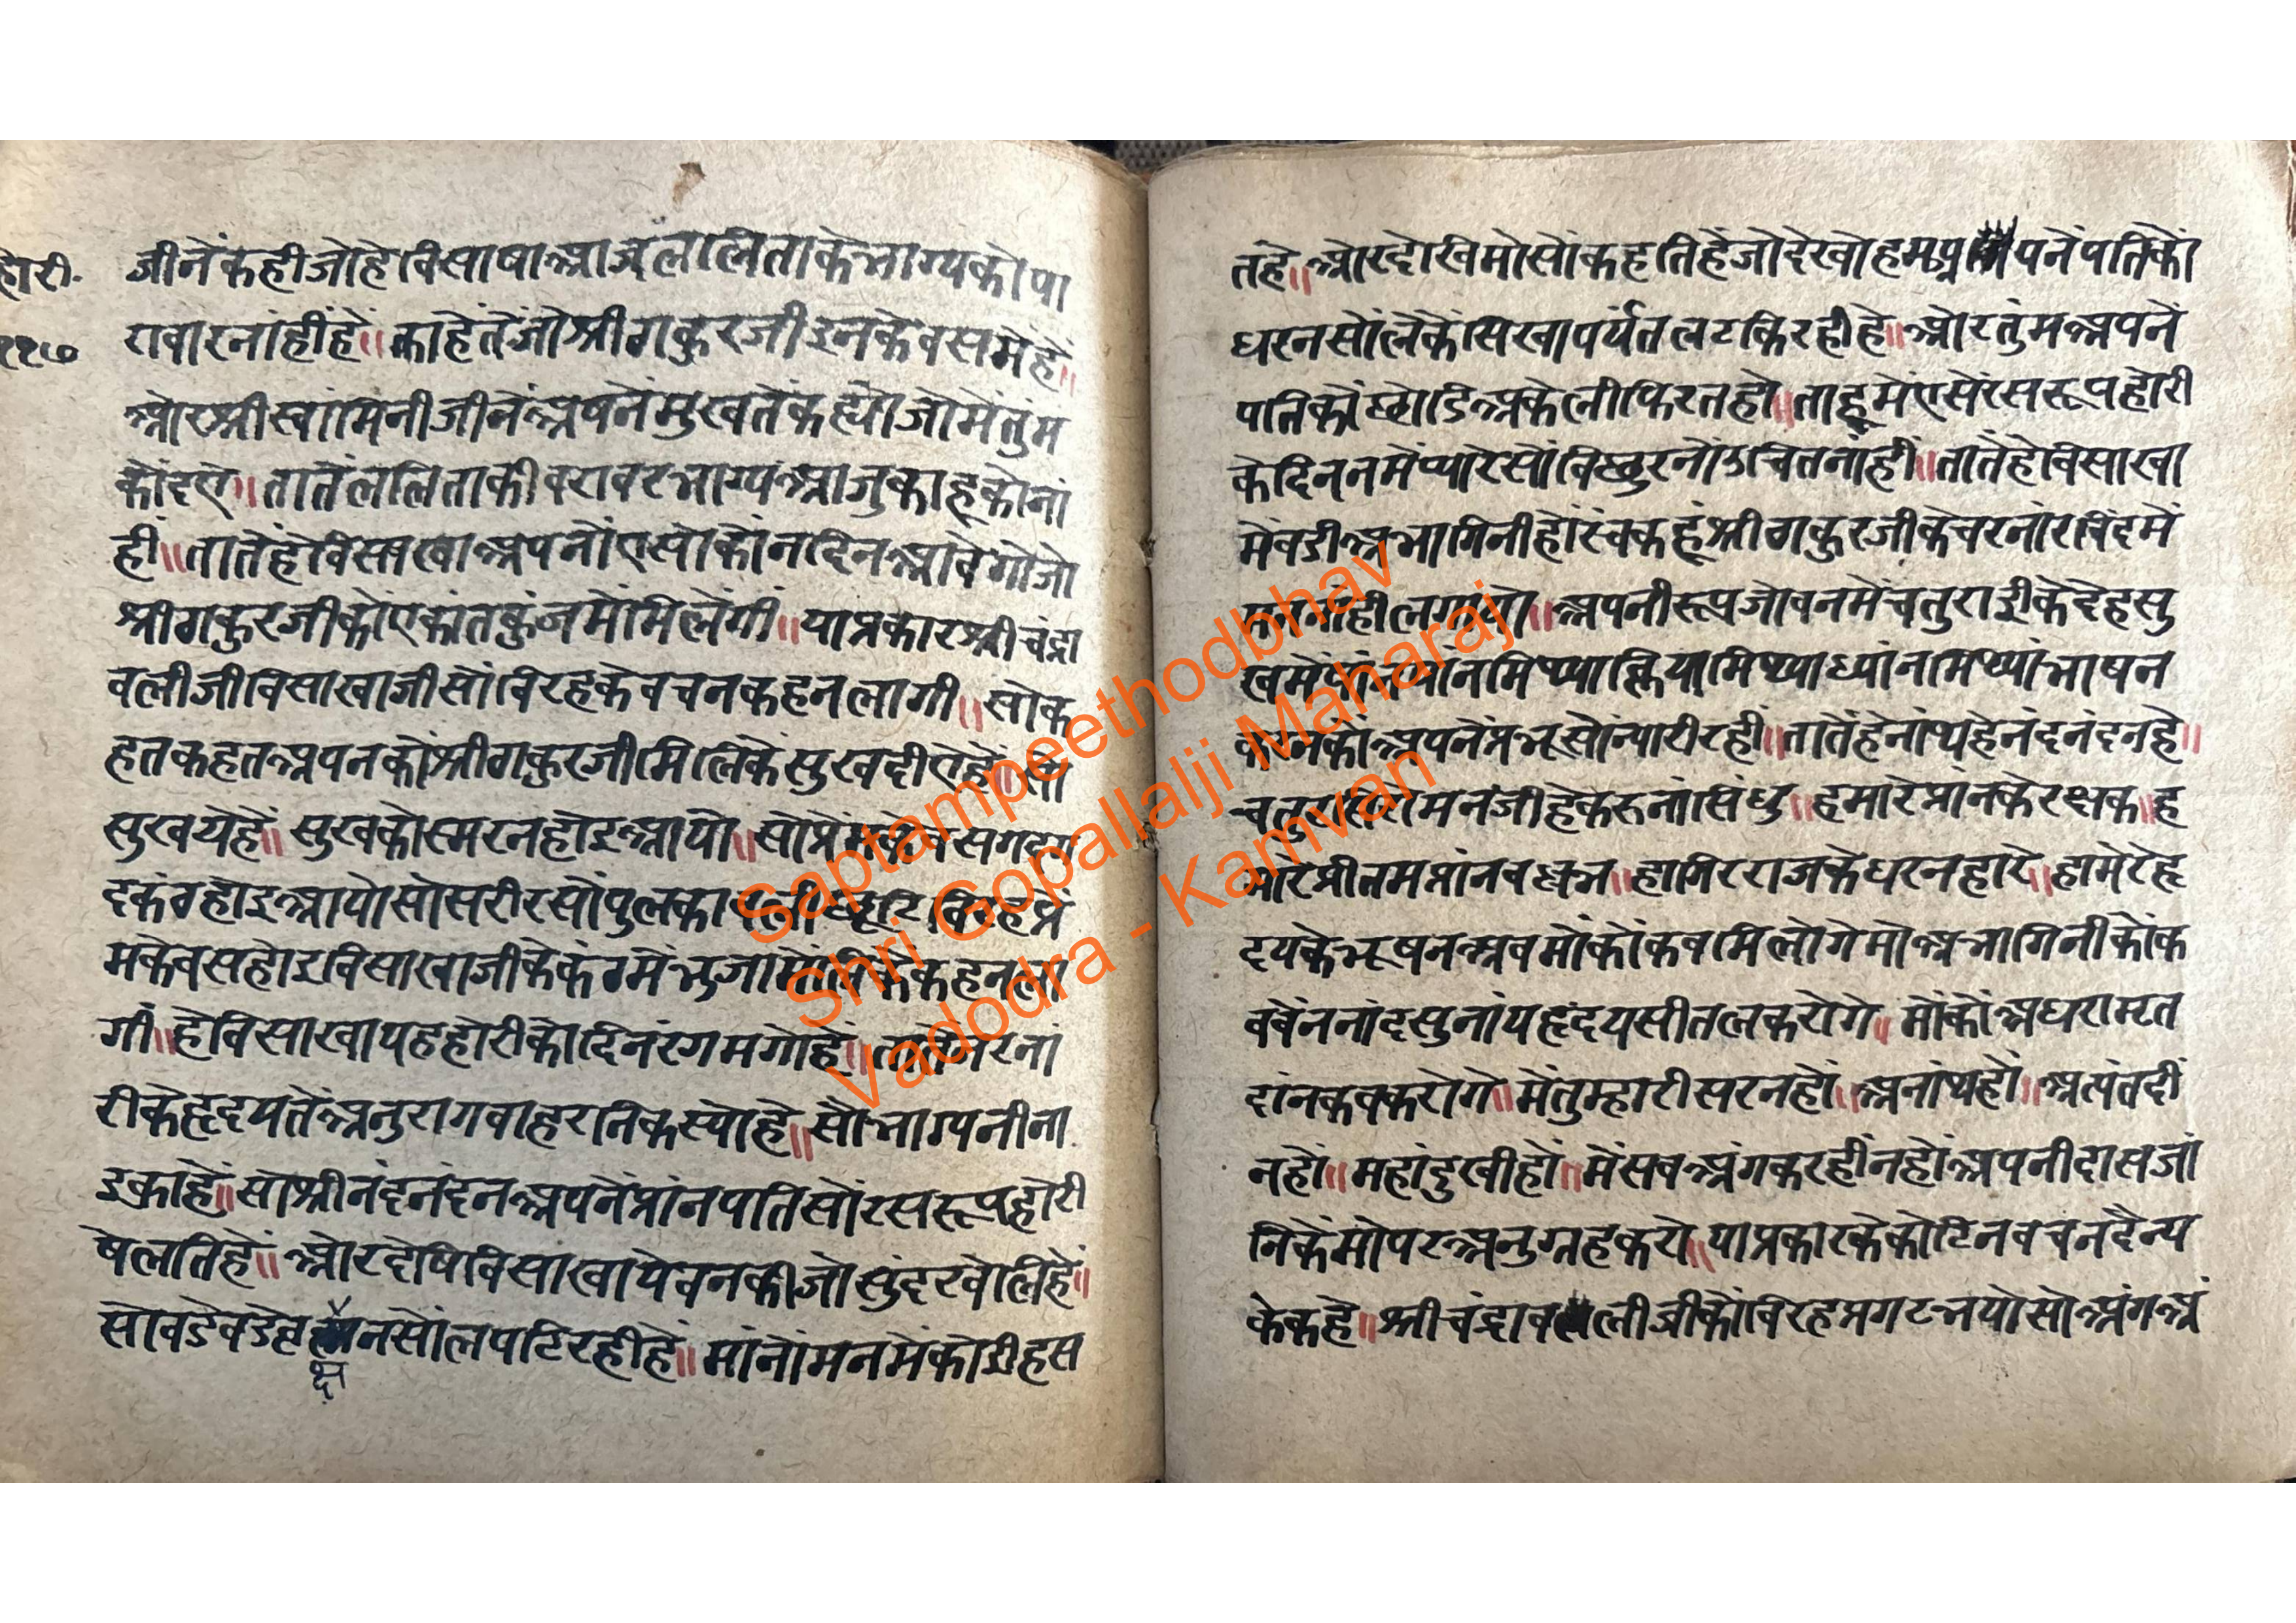 होरी.
११७
जीनेंकहीजोहेविसाषाआजललिताकेभाग्यकोपा
रावारनांहींहें॥काहेतेंजोश्रीठाकुरजीइनकेवसमेंहें॥
ओरश्रीस्वांमिनीजीनेंअपनेंमुखतेंकह्योजोमेंतुम
कोंदए॥तातेंललिताकीवरावरभाग्यआजुकाहूकोनां
हीं॥तातेंहेविसाखाअपनोंएसोकोंनदिनआवेगोजो
श्रीठाकुरजीकोंएकांतकुंजमेंमिलेंगीं॥याप्रकारश्रीचंद्रा
वलीजीविसाखाजीसोंविरहकेवचनकहनलागी॥सोक
हतकहतअपनकोंश्रीठाकुरजीमिलिकेंसुखदीएहें॥सो
सुखयेहें॥सुखकोस्मरनहोइआयो॥सोप्रेमकेवसगदग
दकंठहोइआयोसोसरीरसोंपुलका विरहप्रे
मकेवसहोइविसाखाजीकेकंठमेंभुजामेलिकेंकहनला
गी॥हेविसाखायहहोरीकोदिनरंगमगोहें॥तातेंनरनां
रीकेहृदयतेंअनुरागवाहरनिकस्योहे॥सोभाग्यनीना
इकाहें॥सोश्रीनंदनंदनअपनेंप्रांनपतिसोंरसरूपहोरी
षेलतिहें॥ओरदोषिविसाखायेवनकीजोसुंदरवेलिहें॥
सोवडेवडेवृक्षनसोंलपटिरहीहें॥मांनोंमनमेंकोईहस
तहे॥ओरदोखिमोसोंकहतिहेंजोदेखोहमअपनेंपतिकों
धरनसोंलेकेंसिखापर्यंतलटकिरहीहे॥ओरतुंमअपनें
पतिकोंछोडिअकेलीफिरतहो॥ताहूमेंएसेंरसरूपहोरी
केदिननमेंप्यारेसोंविछुरनोंउचितनांहीं॥तातेंहेविसाखा
मेंवडीअभागिनीहोंस्वकहूंश्रीठाकुरजीकेचरनांरविंदमें
मननांहीलगायो॥अपनीरूपजोवनमेंचतुराईकेदेहसु
खमेंफंन मिथ्याक्रियामिथ्याध्यांनमिथ्याभाषन
करिनकोंअपनेंप्रभूसोंन्यारीरहीं॥तातेंहेनांथहेनंदनंदनहे॥
चतुरसिरोमनजीहेकरूनांसिंधु॥हमारेप्रांनकेरक्षक॥ह
मारेप्रीतमप्रांनवल्लभ॥हागिरराजकेधरनहारे॥हामेरेहृ
दयकेभूषनअवमोंकोंकवमिलोगेमोअभागिनीकोंक
ववेंननांदसुनांयहृदयसीतलकरोगे॥मोंकोंअधरामृत
दांनकवकरोगे॥मेंतुम्हारीसरनहों॥अनांथहों॥अत्यंतदीं
नहों॥महांदुखीहों॥मेंसवअंगकरहींनहोंअपनीदासजां
निकेंमोपरअनुग्रहकरो॥याप्रकारकेकोटिनवचनदैन्य
केकहे॥श्रीचंद्रावलीजीकोंविरहप्रगटभयोसोअंगअं
Saptampeethodbhav
Shri Gopallalji Maharaj
Vadodra - Kamvan